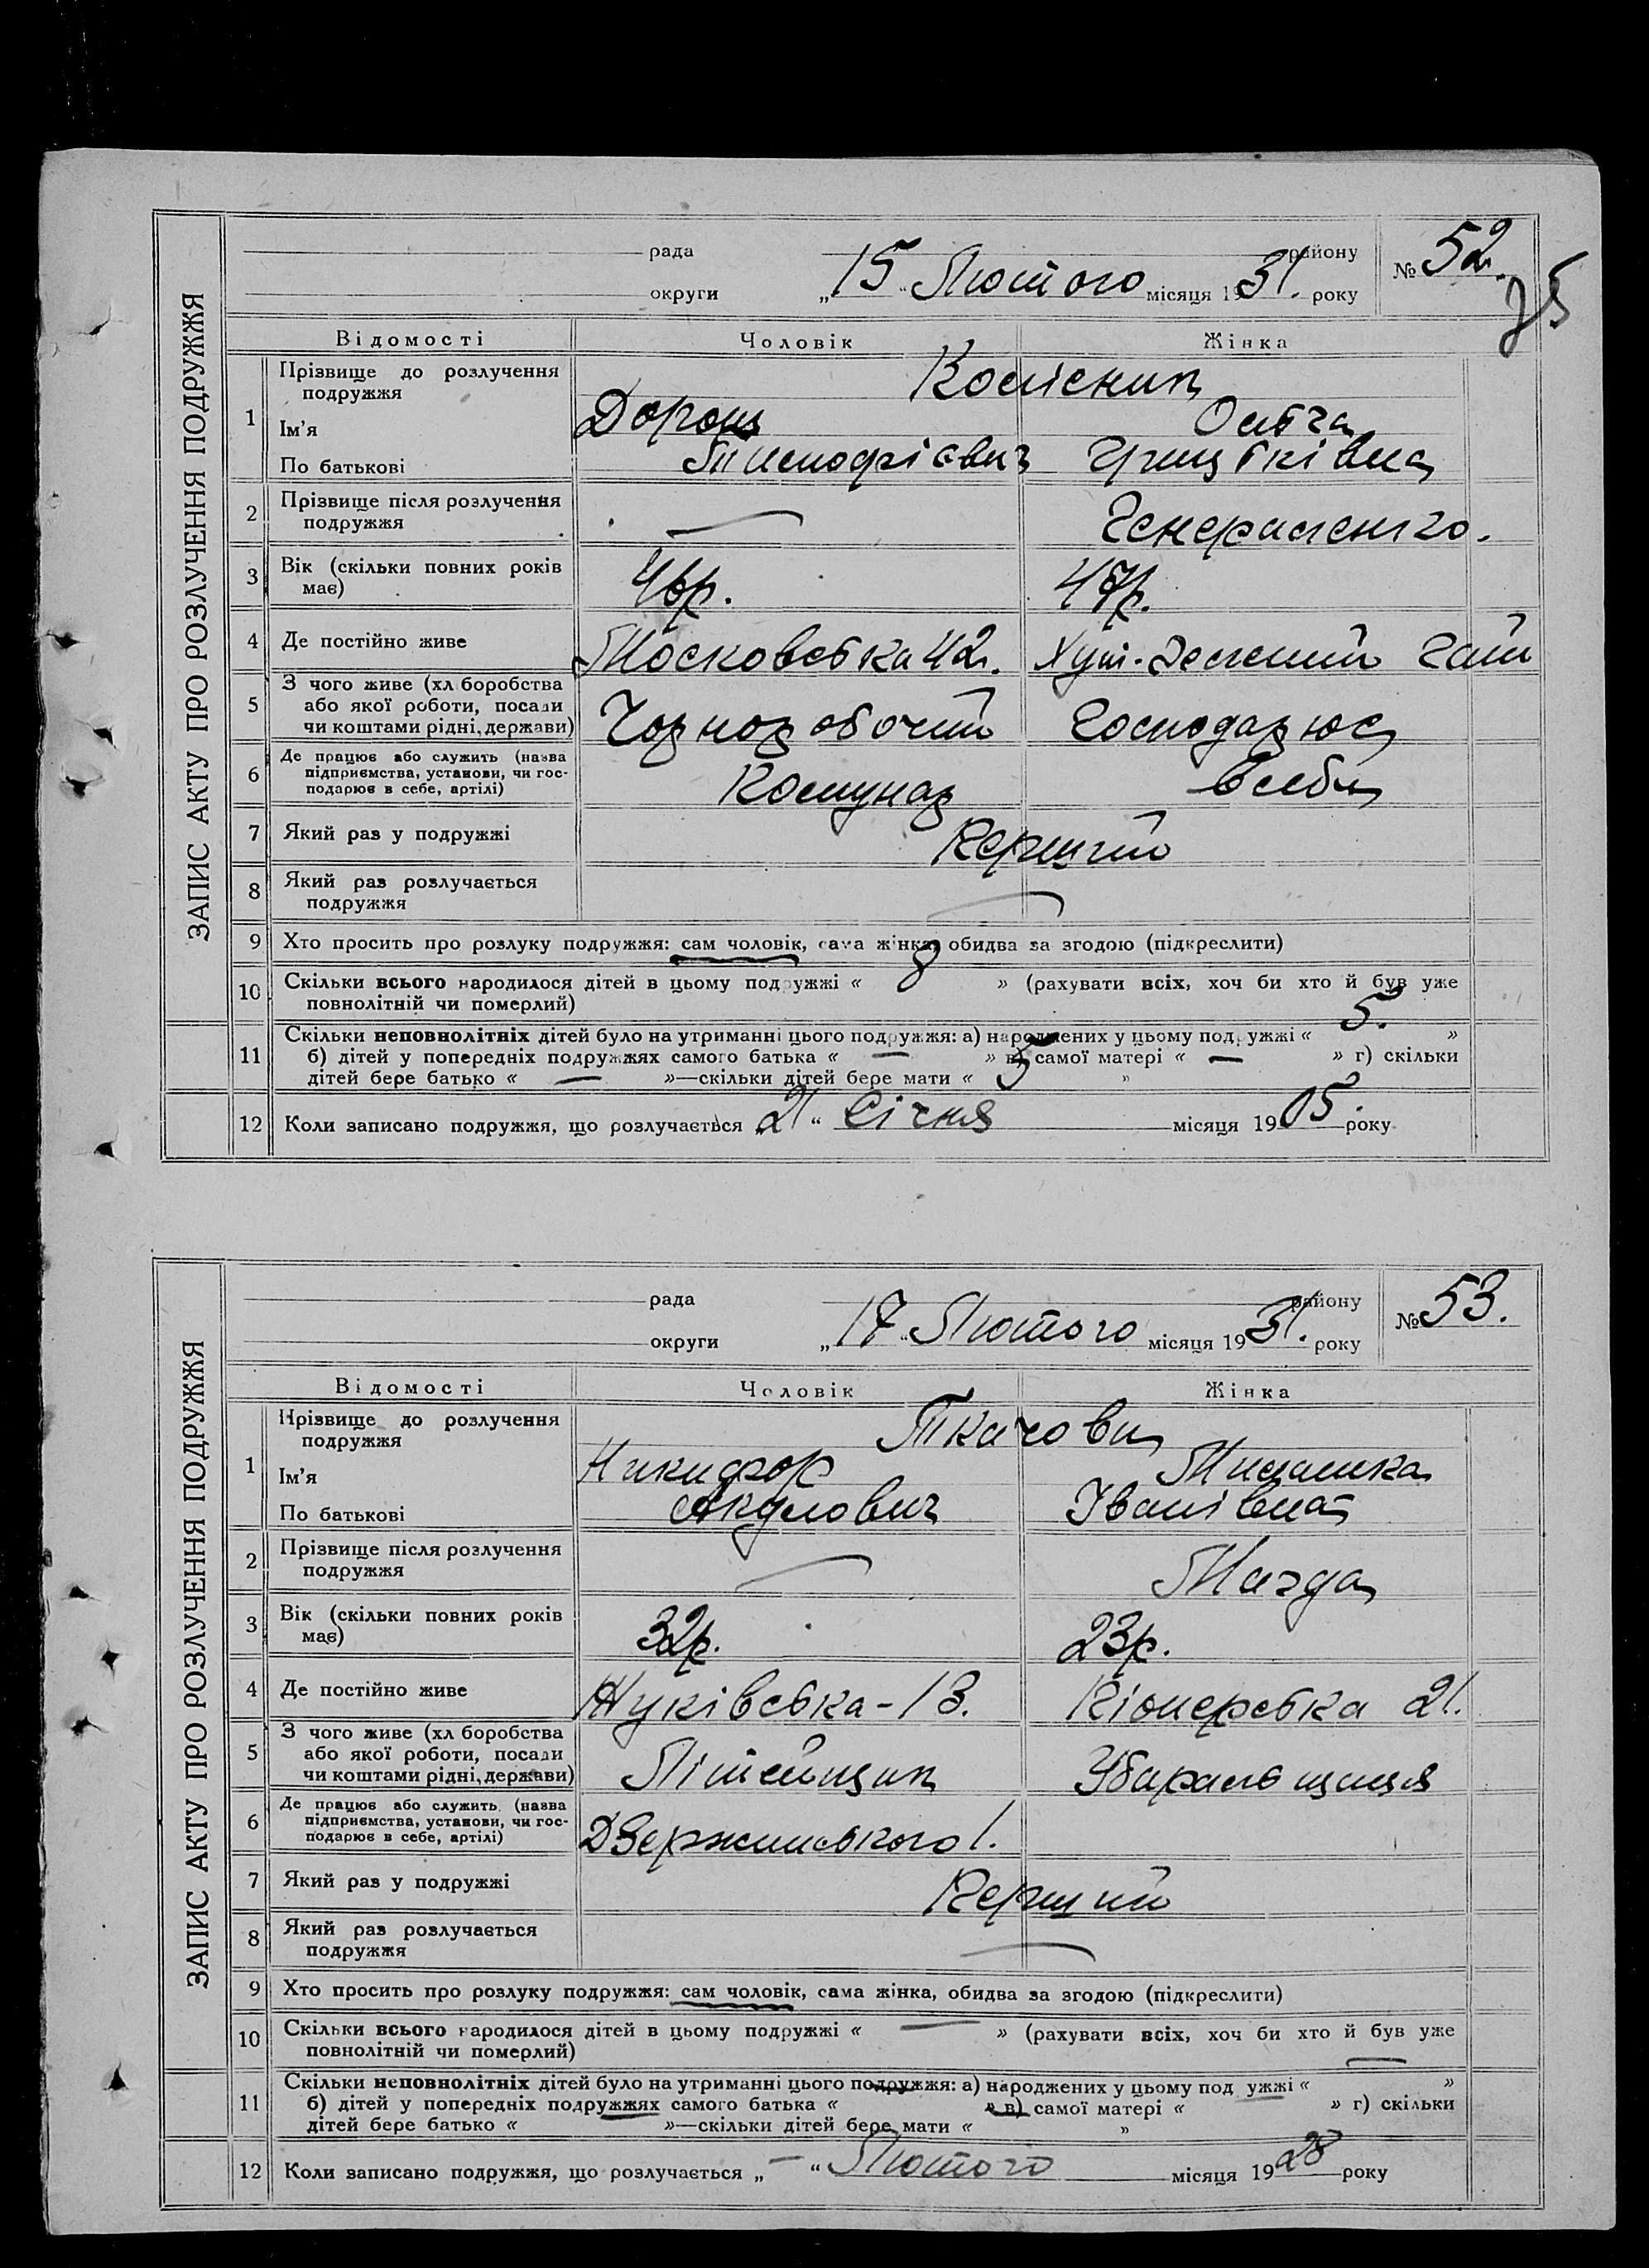 ЗАПИС АКТУ ПРО РОЗЛУЧЕННЯ ПОДРУЖЖЯ
рада району № 52.
округи „15“ Лютого місяця 1931. року
75
Відомості Чоловік Жінка
1 Прізвище до розлучення подружжя Колісник
Ім'я Дорош Ольга
По батькові Тимофієвич Грицьківна
2 Прізвище після розлучення подружжя — Генераленко.
3 Вік (скільки повних років має) 46р. 47р.
4 Де постійно живе Московська 42. Хут. Зелений Гай
5 З чого живе (хліборобства або якої роботи, посади чи коштами рідні, держави) Чорноробочий Господарює
6 Де працює або служить (назва підприємства, установи, чи господарює в себе, артілі) Комунар в себе
7 Який раз у подружжі Перший
8 Який раз розлучається подружжя —
9 Хто просить про розлуку подружжя: сам чоловік, сама жінка, обидва за згодою (підкреслити)
10 Скільки всього народилося дітей в цьому подружжі « 8 » (рахувати всіх, хоч би хто й був уже
повнолітній чи померлий)
11 Скільки неповнолітніх дітей було на утриманні цього подружжя: а) народжених у цьому подружжі « 5. »
б) дітей у попередніх подружжях самого батька « — » в) самої матері « — » г) скільки
дітей бере батько « — »—скільки дітей бере мати « 5 »
12 Коли записано подружжя, що розлучається „21“ Січня місяця 1905. року
ЗАПИС АКТУ ПРО РОЗЛУЧЕННЯ ПОДРУЖЖЯ
рада району № 53.
округи „17“ Лютого місяця 1931. року
Відомості Чоловік Жінка
1 Прізвище до розлучення подружжя Ткачови
Ім'я Никифор
По батькові Акулович Іванівна
2 Прізвище після розлучення подружжя — Магда
3 Вік (скільки повних років має) 32р. 23р.
4 Де постійно живе Жуківська-13. Піонерська 21.
5 З чого живе (хліборобства або якої роботи, посади чи коштами рідні, держави) Літейщик Убиральщиця
6 Де працює або служить (назва підприємства, установи, чи господарює в себе, артілі) Дзержинського 1.
7 Який раз у подружжі Перший
8 Який раз розлучається подружжя —
9 Хто просить про розлуку подружжя: сам чоловік, сама жінка, обидва за згодою (підкреслити)
10 Скільки всього народилося дітей в цьому подружжі « — » (рахувати всіх, хоч би хто й був уже
повнолітній чи померлий)
11 Скільки неповнолітніх дітей було на утриманні цього подружжя: а) народжених у цьому подружжі « — »
б) дітей у попередніх подружжях самого батька « » в) самої матері « » г) скільки
дітей бере батько « »—скільки дітей бере мати « »
12 Коли записано подружжя, що розлучається „—“ Лютого місяця 1928 року